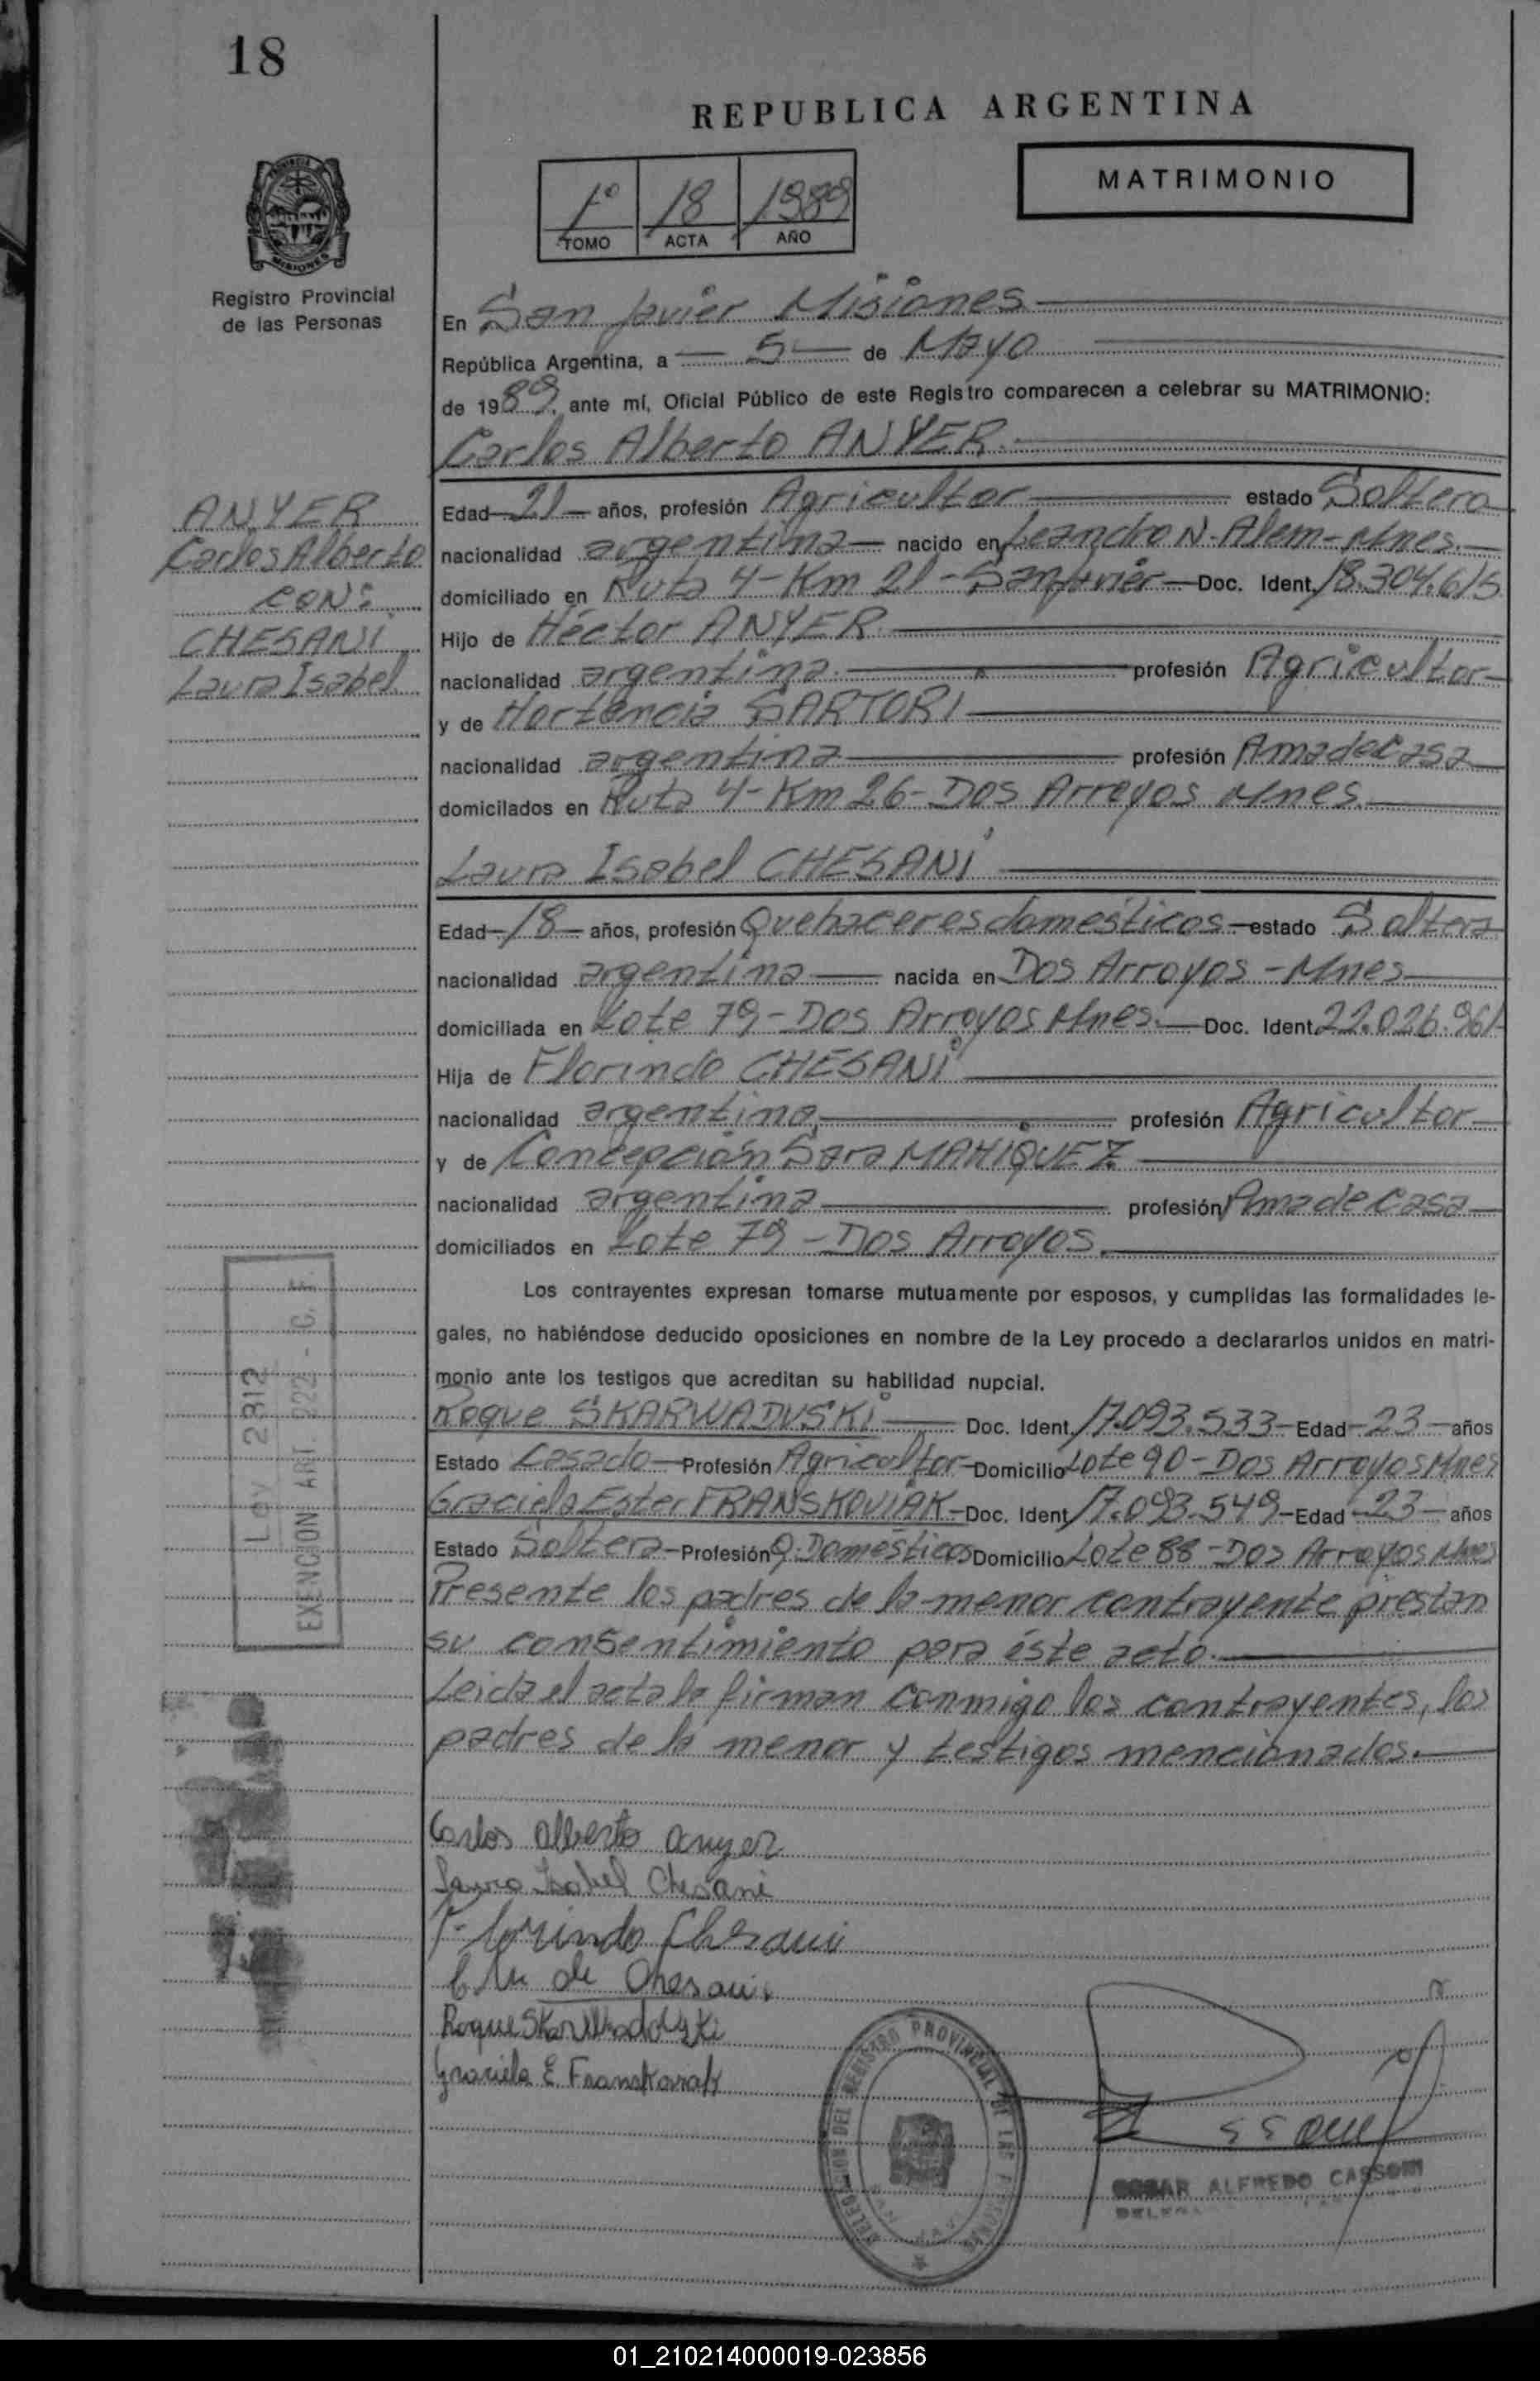 18
REPUBLICA ARGENTINA
MATRIMONIO
1º 18 1989
TOMO ACTA AÑO
MISIONES
Registro Provincial
de las Personas
En San Javier Misiones
República Argentina, a 5 de Mayo
de 1989, ante mí, Oficial Público de este Registro comparecen a celebrar su MATRIMONIO:
Carlos Alberto ANYER
ANYER
Carlos Alberto
CON:
CHESANI
Laura Isabel
Edad 21 años, profesión Agricultor estado Soltero
nacionalidad argentina nacido en Leandro N. Alem - Mnes.
domiciliado en Ruta 4 - Km 21 - San Javier Doc. Ident. 18.304.615
Hijo de Héctor ANYER
nacionalidad argentina profesión Agricultor
y de Hortencia SARTORI
nacionalidad argentina profesión Ama de Casa
domicilados en Ruta 4 - Km 26 - Dos Arroyos Mnes.
Laura Isabel CHESANI
Edad 18 años, profesión Quehaceres domésticos estado Soltera
nacionalidad argentina nacida en Dos Arroyos - Mnes
domiciliada en Lote 79 - Dos Arroyos Mnes. Doc. Ident. 22.026.961
Hija de Florindo CHESANI
nacionalidad argentina profesión Agricultor
y de Concepción Sara MAHIQUEZ
nacionalidad argentina profesión Ama de casa
domiciliados en Lote 79 - Dos Arroyos.
Los contrayentes expresan tomarse mutuamente por esposos, y cumplidas las formalidades le-
gales, no habiéndose deducido oposiciones en nombre de la Ley procedo a declararlos unidos en matri-
monio ante los testigos que acreditan su habilidad nupcial.
Roque SKARWADUSKI Doc. Ident. 17.093.533 - Edad 23 años
Estado Casado Profesión Agricultor Domicilio Lote 90 - Dos Arroyos Mnes
Graciela Ester FRANSKOVIAK Doc. Ident. 17.093.549 - Edad 23 años
Estado Soltera Profesión Q. Domésticos Domicilio Lote 88 - Dos Arroyos Mnes
Presente los padres de la menor contrayente prestan
su consentimiento para éste acto.
Leida el acta la firman conmigo los contrayentes, los
padres de la menor y testigos mencionados.
Ley 2812
EXENCION ART. 222 - C. F.
Carlos Alberto Anyer
Laura Isabel Chesani
Florindo Chesani
de Chesani
Graciela E Franskoviak
DELEGACION DEL REGISTRO PROVINCIAL DE LAS PERSONAS
ALFREDO CASSONI
01_210214000019-023856